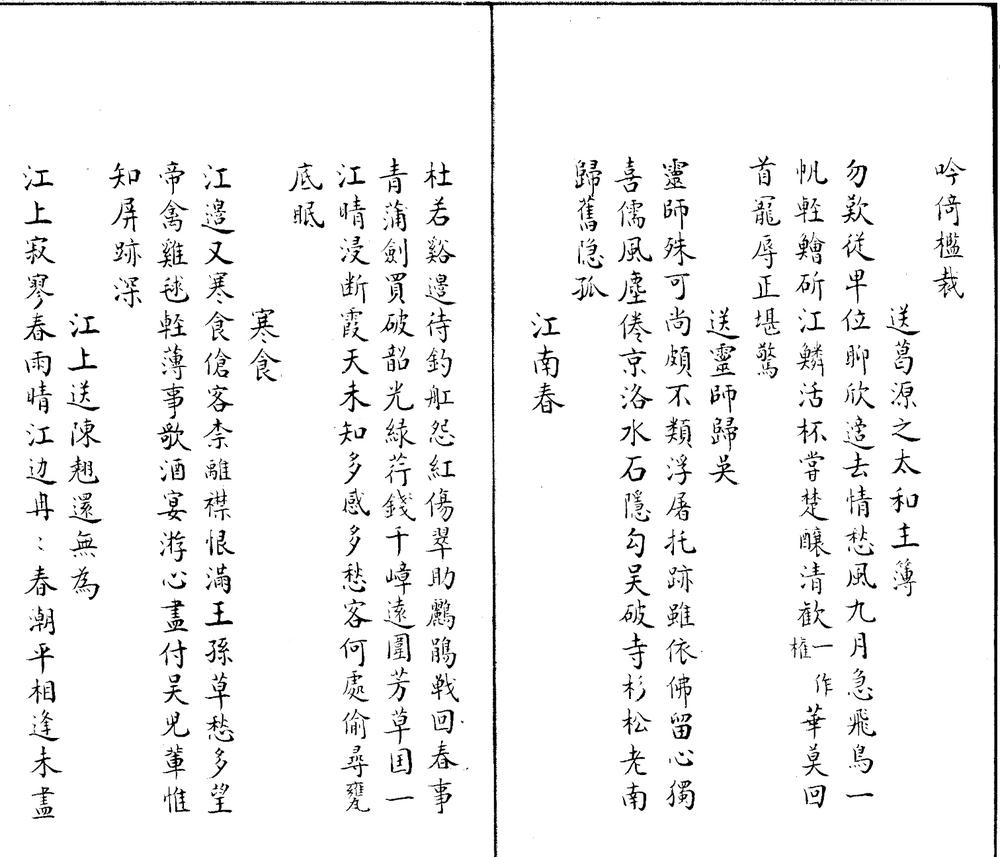 吟倚檻裁
送葛源之太和主簿
勿歎從卑位聊欣適去情愁風九月急飛鳥一
帆輕鱠斫江鱗活杯嘗楚釀清歡一作權華莫回
首寵辱正堪驚
送靈師歸吳
靈師殊可尚頗不類浮屠托跡雖依佛留心獨
喜儒風塵倦京洛水石隱勾吴破寺杉松老南
歸舊隐孤
江南春
杜若谿邉待釣舡怨紅傷翠助鸝鵑戦回春事
青蒲劍買破韶光緑荇錢千嶂遠圍芳草国一
江晴浸断霞天未知多感多愁客何處偷尋甕
底眠
寒食
江邉又寒食傖客柰離襟恨滿王孫草愁多望
帝禽雞毬輊薄事歌酒宴游心盡付吴児輩惟
知屏跡深
江上送陳翘還無為
江上寂寥春雨晴江边冉〻春潮平相逢未盡